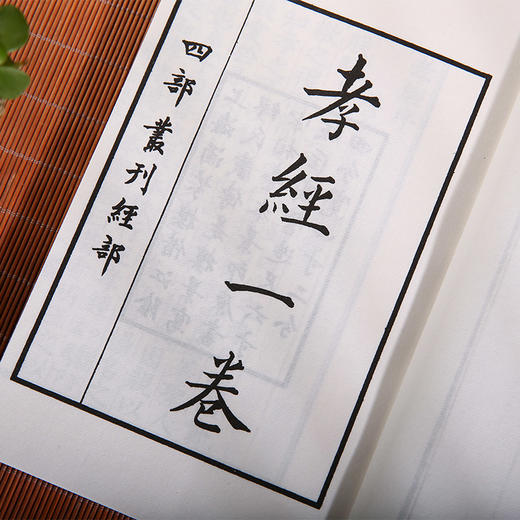 孝經一卷
四部叢刊經部